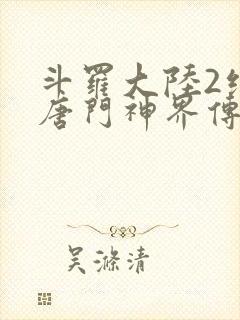 斗羅大陸2
唐門神界傳
吳滌清